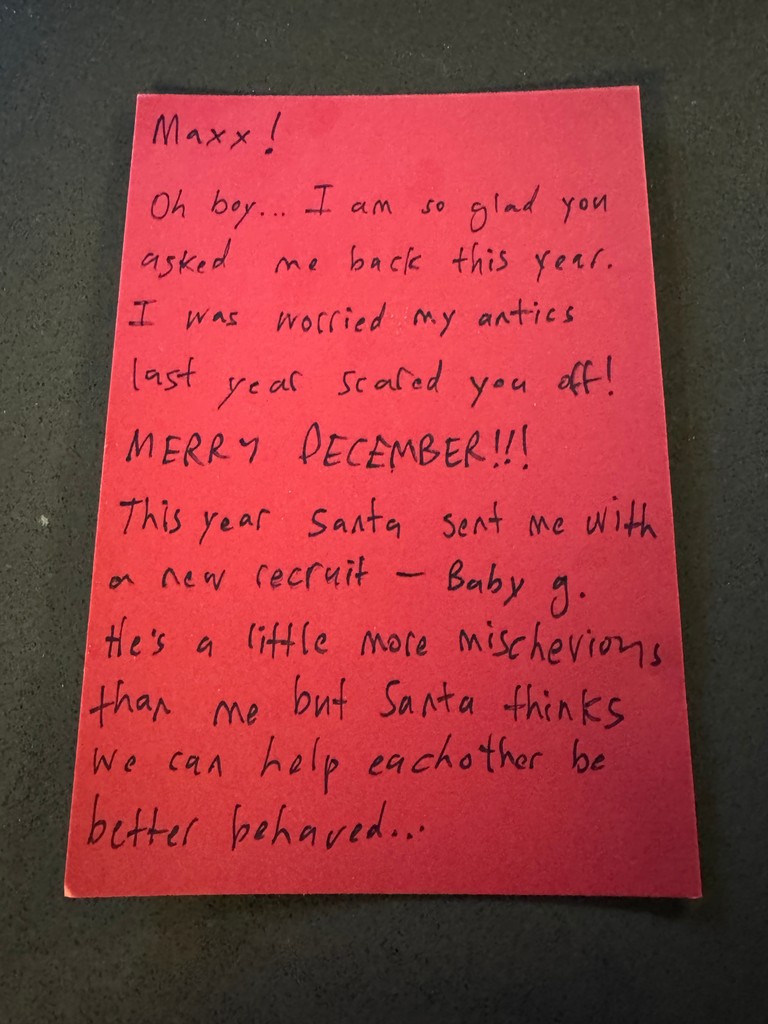 Maxx!
Oh boy... I am so glad you
asked me back this year.
I was worried my antics
last year scared you off!
MERRY DECEMBER!!!
This year Santa sent me with
a new recruit - Baby g.
He's a little more mischevious
than me but Santa thinks
we can help eachother be
better behaved...